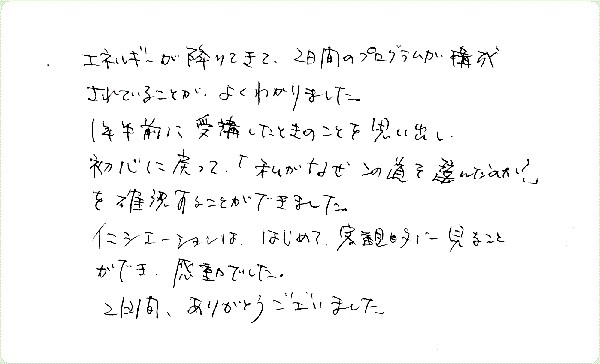 エネルギーが降りてきて、2日間のプログラムが構成
されていることが、よくわかりました。
1年半前に受講したときのことを思い出し、
初心に戻って、「私がなぜこの道を選んだのか?」
を確認することができました。
イニシエーションは、はじめて、客観的に見ること
ができ、感動でした。
2日間、ありがとうございました。